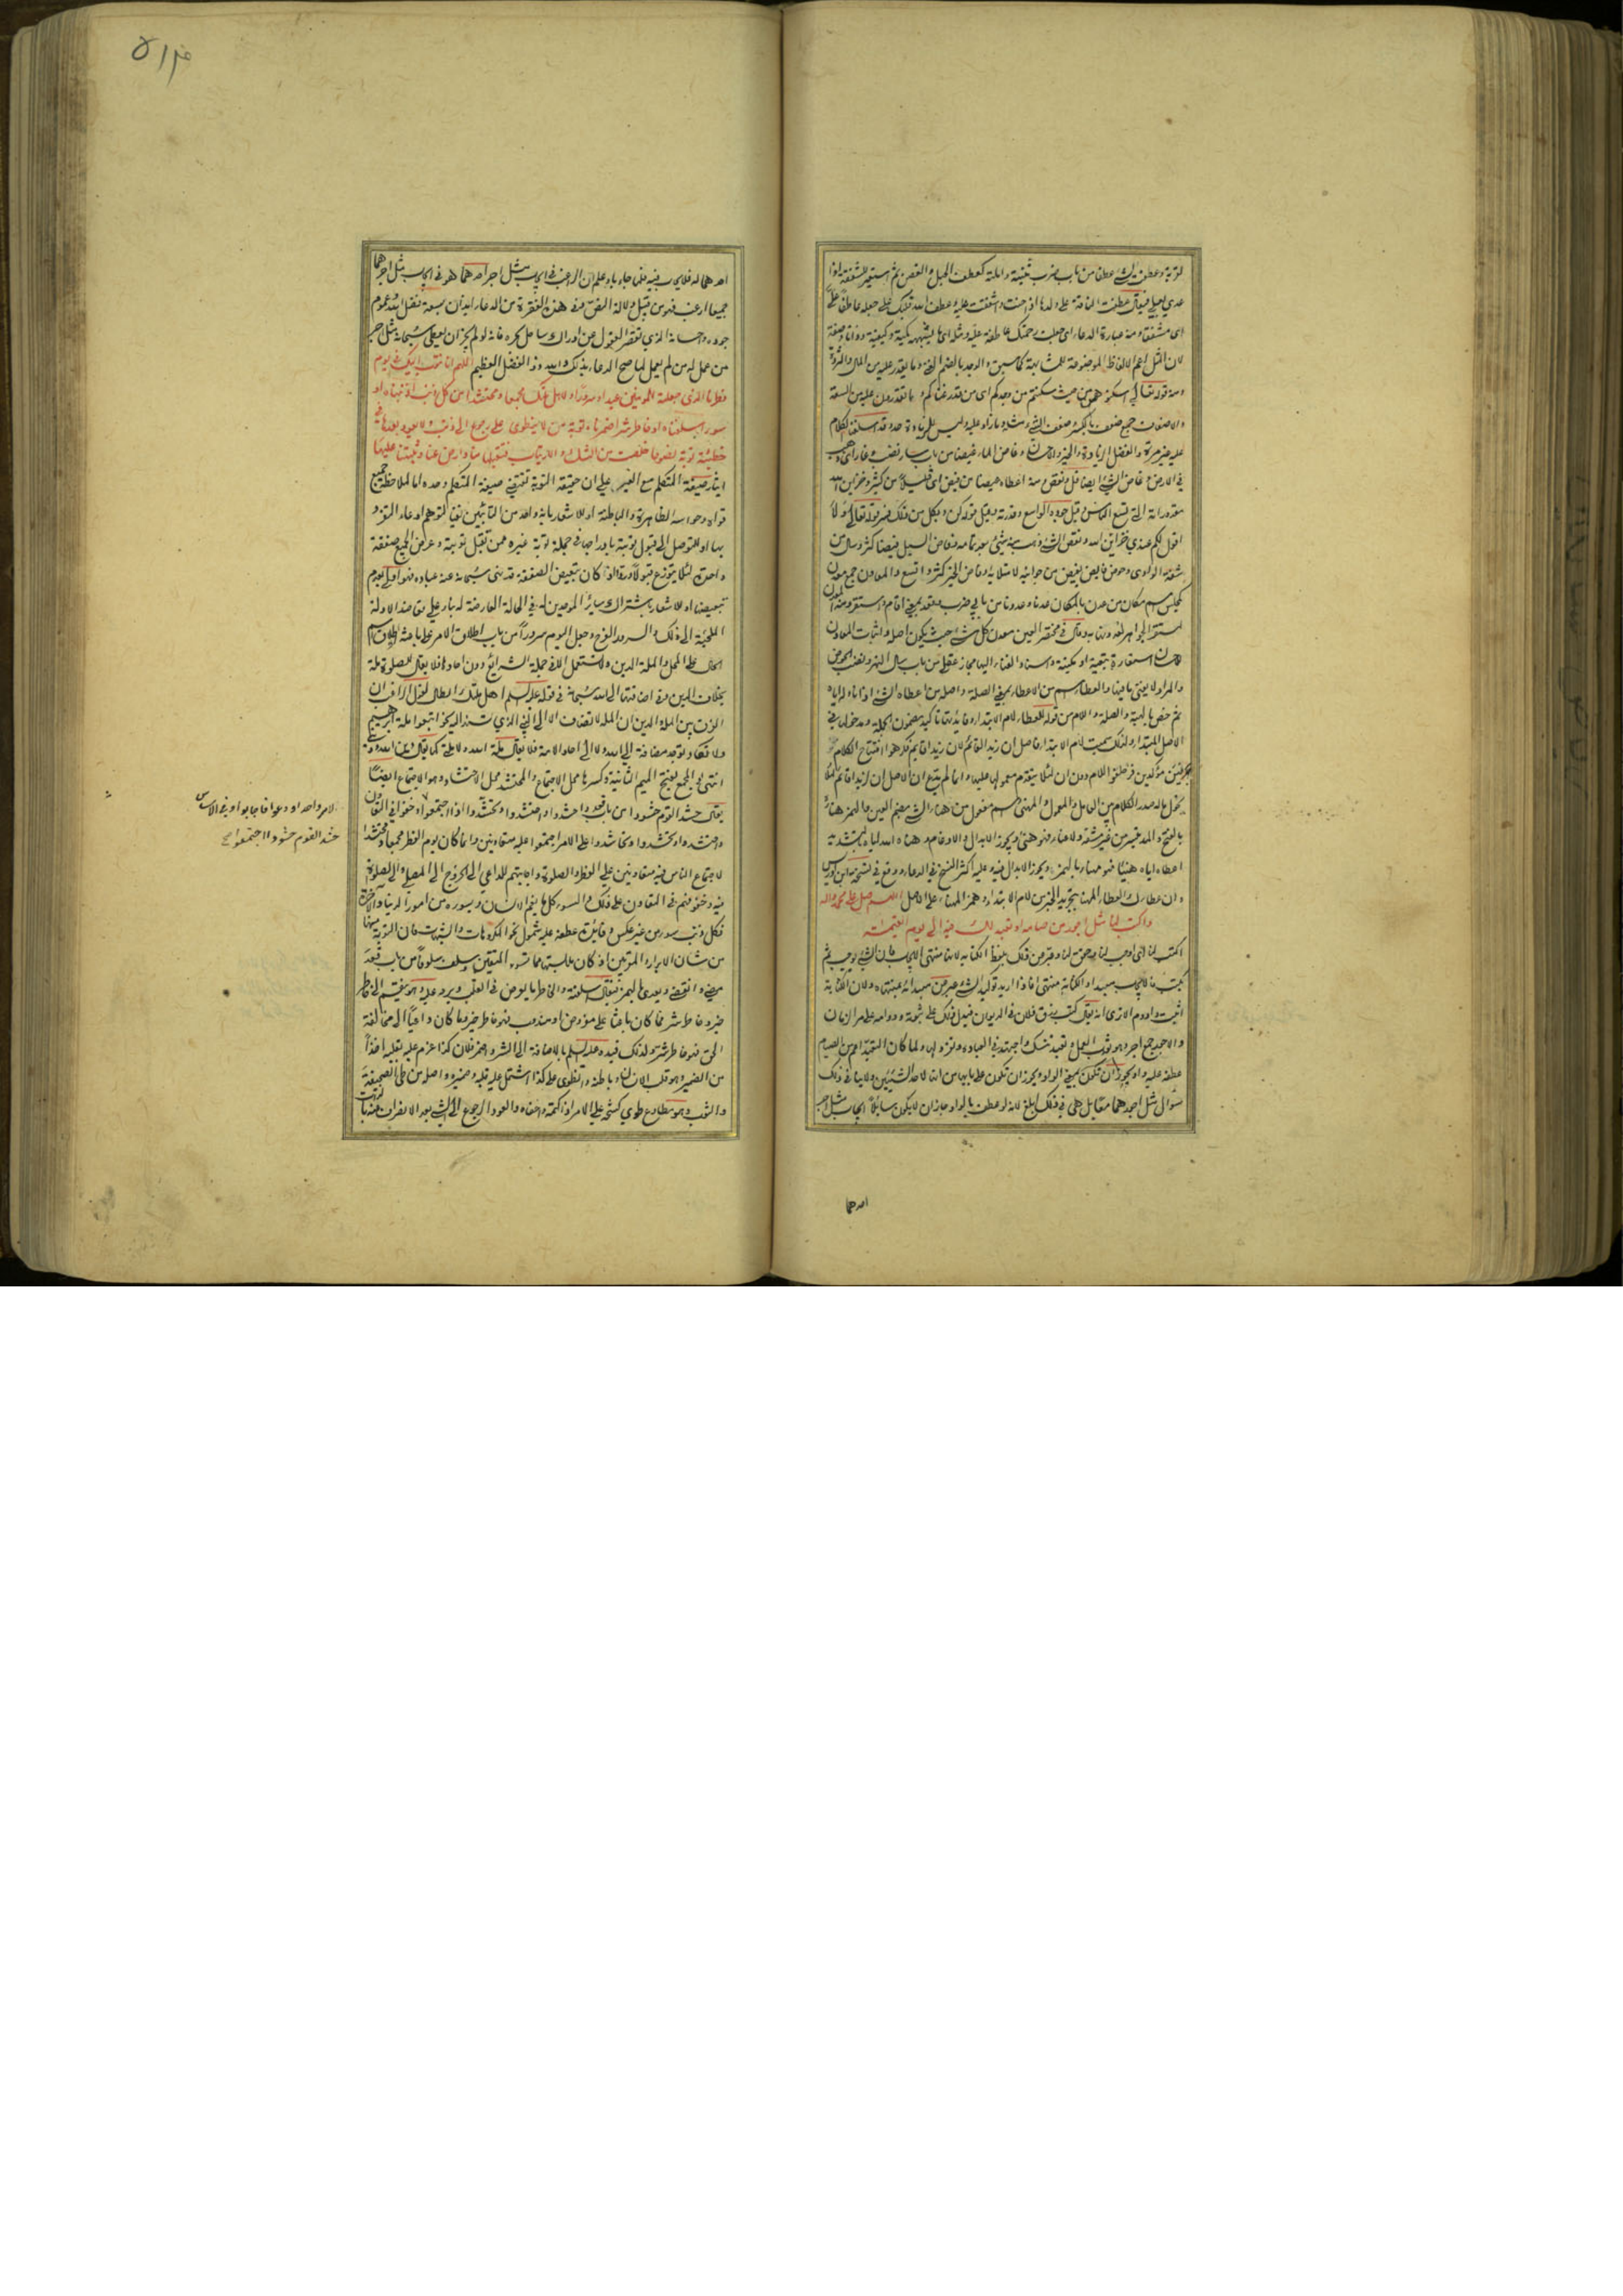 لتوبة وعطفت الشيء عطفا من باب ضرب ثنيته واملته كعطف الحبل والغصن ثم استعير للشفقة اذا
عدي بعلى فيقال عطفت الناقة على ولدها اذ احنت واشفقت عليه وعطف الله قلبك على جعله عاطفا على
اى مشفقا ومنه عبارة الدعاء اى جعلت رحمتك عاطفة عليه ومثله اى ما يشبهه كمية وكيفية وذاتا وصفة
لان المثل اعم الالفاظ الموضوعة للمشابهة كما سبق والوجد بالضم الغنى وما يقدر عليه من المال والثروة
ومنه قوله تعالى اسكنوهن من حيث سكنتم من وجدكم اى من قدر غناكم وما تقدرون عليه من السعة
والاضعاف جمع ضعف بالكسر وضعف الشيء مثله وما زاد عليه وليس للزيادة حد وقد اسلفنا الكلام
عليه غير مرة والفضل الزيادة والخير والاحسان وغاض الماء غيضا من باب سار نضب وغار اى ذهب
في الارض وغاض الشيء ايضا قل ونقص ومنه اعطاه غيضا من فيض اى قليلا من كثير وخزاين الله
مقدوراته التى تسع الكائنات وقيل جوده الواسع وقدرته وقيل قوله كن وبكل من ذلك فسر قوله تعالى ولا
اقول لكم عندي خزاين الله ونقص الشيء ذهب منه شيء بعد تمامه وفاض السيل فيضا كثر وسال من
شفة الوادى وحوض فايض يفيض من جوانبه لامتلائه وفاض الخير كثر واتسع والمعادن جمع معدن
كمجلس اسم مكان من عدن بالمكان عدنا وعدونا من بابي ضرب وقعد بمعنى اقام واستقر ومنه المعدن
لمستقر الجواهر وقال في مختصر العين معدن كل شيء حيث يكون اصله واثبات المعادن
للاحسان استعارة تبعية او مكنية واسناد الفناء اليها مجاز عقلي من باب سال النهر وفاض الحوض
والمراد لا يفنى ما فيها والعطاء اسم من الاعطاء بمعنى الصلة واصله من اعطاه الشيء اذا ناوله اياه
ثم خص بالهبة والصلة واللام من قوله للعطاء لام الابتداء وفايدتها تاكيد مضمون الجملة ومدخولها في
الاصل المبتدا ولذلك سميت لام الابتداء فاصل ان زيدا لقائم لان زيدا قايم فكرهوا افتتاح الكلام
بحرفين مؤكدين فزحلقوا اللام دون ان لئلا يتقدم معمولها عليها وانما لم يدع ان الاصل ان لزيدا قائم لئلا
يحول ماله صدر الكلام بين العامل والمعمول والمهنى اسم مفعول من هنأ الشيء بضم العين والهمز هناءة
بالفتح والمد تيسر من غير مشقة ولا عناء فهو هنئ ويجوز الابدال والادغام وهناه الله اياه بالتشديد
اعطاه اياه هنيئا فهو مهنا بالهمز ويجوز الابدال فيه وعليه اكثر النسخ في الدعاء ووقع في نسخة ابن ادريس
وان عطاءك العطاء المهنا بتجريد الخبر من لام الابتداء وهمز المهنا على الاصل اللهم صل على محمد واله
واكتب لنا مثل اجور من صامه او تعبد لك فيه الى يوم القيمة
اكتب لنا اى اوجب لنا
يكتب
اثبت وادوم الا ترى انه يقال كتب رزق فلان في الديوان فيدل ذلك على ثبوته ودوامه على مر الازمان
والاجور جمع اجر وهو ثواب العمل وتعبد تنسك واجتهد في العبادة ولما كان التعبد اعم من الصيام
عطفه عليه واو يجوز ان تكون بمعنى الواو ويجوز ان تكون على بابها من انها لاحد الشيئين ولا ينافي ذلك
سؤال مثل اجرهما مقابل هى في ذلك ابلغ لانه لو عطف بالواو جاز ان لا يكون سائلا ايجاب مثل اجر
احدهما
احدهما له
جميعا
جوده واحسانه الذي تقصر العقول عن ادراك ساحل بحره فانه لو لم يجز ان يعطى سبحانه مثل اجر
من عمل له من لم يعمل لما صح الدعاء بذلك والله ذو الفضل العظيم اللهم انا نتوب اليك في يوم
فطرنا الذى جعلته للمؤمنين عيدا وسرورا ولاهل ملتك مجمعا ومحتشدا من كل ذنب اذنبناه او
سوء اسلفناه او خاطر شر اضمرناه توبة من لا ينطوى على رجوع الى ذنب ولا يعود بعدها في
خطيئة توبة نصوحا خلصت من الشك والارتياب فتقبلها منا وارض عنا وثبتنا عليها
ايثار صيغة المتكلم مع الغير على ان حقيقة التوبة تقتضي صيغة المتكلم وحده اما لملاحظة جميع
قواه وحواسه الظاهرة والباطنة او للاشعار بانه واحد من التائبين نفيا لتوهم ادعاء التفرد
بها او للتوصل الى قبول توبته بادراجها في جملة توبة غيره ممن تقبل توبته وعرض الجميع صفقة
واحدة لئلا يتوزع قبولا وردا اذا كان تبعيض الصفقة قد نهى سبحانه عنه عباده فهو اولى بعدم
تبعيضها او للاشعار باشتراك سائر الموحدين له في الحالة العارضة له بناء على تعاضد الادلة
الملجئة الى ذلك والسرور الفرح وجعل اليوم سرورا من باب اطلاق الامر على باعثه اطلاق اسم
الحال على المحل والملة الدين ولا تستعمل الا في جملة الشرائع دون احادها فلا يقال للصلوة ملة
بخلاف الدين وفي اضافتها الى الله سبحانه في قوله عليه السلام اهل ملتك ابطال لقول الراغب ان
الفرق بين الملة والدين ان الملة لا تضاف الا الى النبي الذي تسند اليه نحو اتبعوا ملة ابراهيم
ولا تكاد توجد مضافة الى الله ولا الى احاد الامة فلا يقال ملة الله ولا ملتى كما يقال دين الله ودينى
انتهى والمجمع بفتح الميم الثانية وكسرها محل الاجتماع والمحتشد محل الاحتشاد وهو الاجتماع ايضا
يقال حشد القوم حشودا من باب قعد واحتشدوا وتحشدوا اذا اجتمعوا او خفوا في التعاون
واحتشدوا وتحشدوا وتحاشدوا على الامر اجتمعوا عليه متعاونين وانما كان يوم الفطر مجمعا ومحتشدا
لاجتماع الناس فيه متعاونين على الفطر والصلوة واجابتهم للداعي الى الخروج الى المصلى والى الصلوة
فيه وخفوفهم في التعاون على ذلك والسوء كل ما يغم الانسان ويسوءه من امور الدنيا والاخرة
فكل ذنب سوء من غير عكس وفايدة عطفه عليه شمول نحو المكروهات والشبهات فان التوبة منها
من شان الابرار والمقربين
مضى وانقضى ويعدى بالهمز فيقال اسلفته والخاطر ما يعرض في القلب ويرد عليه وهو ينقسم الى خاطر
خير وخاطر شر فما كان باعثا على مفروض او مندوب فهو خاطر خير وما كان داعيا الى مخالفة
الحق فهو خاطر شر ولذلك قيده عليه السلم بالاضافة الى الشر واضمر فلان كذا عزم عليه بقلبه اخذا
من الضمير وهو قلب الانسان وباطنه وانطوى على كذا اشتمل عليه قلبه وضميره واصله من طى الصحيفة
والثوب وهو مطاوع طوي كشحه على الامر اذا كتمه واخفاه والعود الرجوع الى الشيء بعد الانصراف عنه
لامر واحد او دعوا فاجابوا وفي الاساس
حشد القوم حشودا اجتمعوا